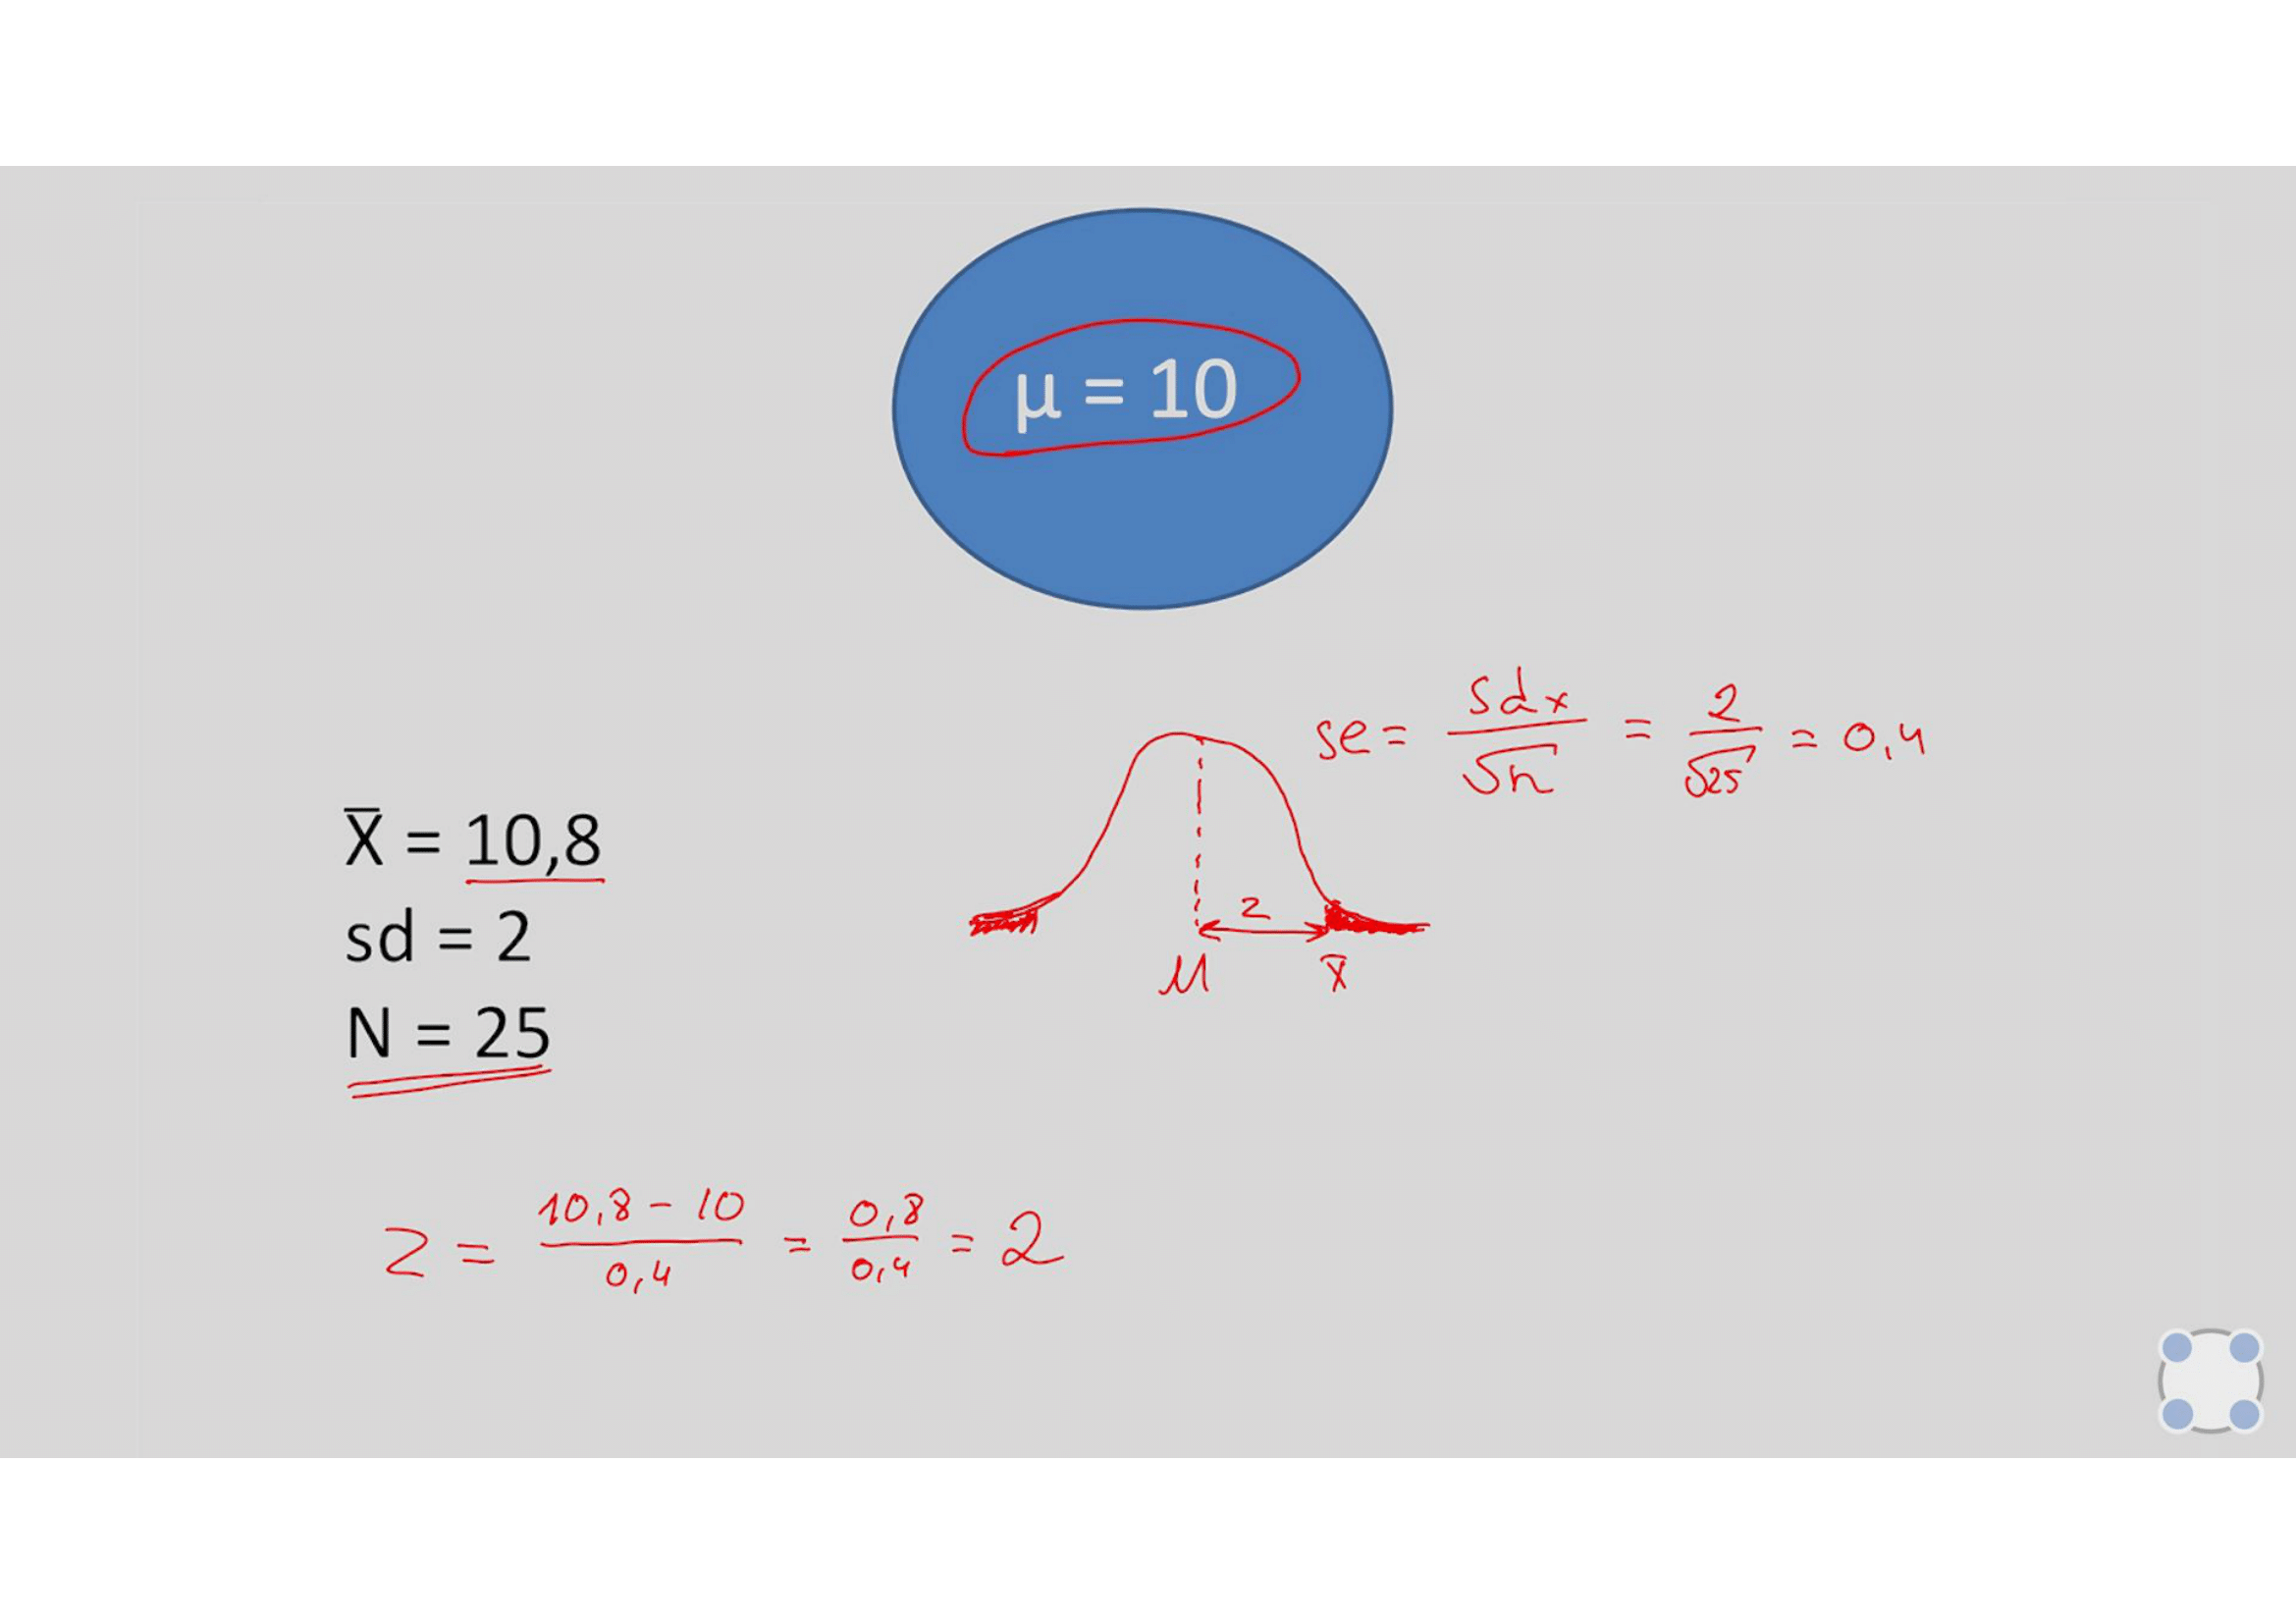 μ = 10
se = sdx / √n = 2 / √25 = 0,4
X̅ = 10,8
sd = 2
N = 25
z
μ x̅
z = 10,8 - 10 / 0,4 = 0,8 / 0,4 = 2